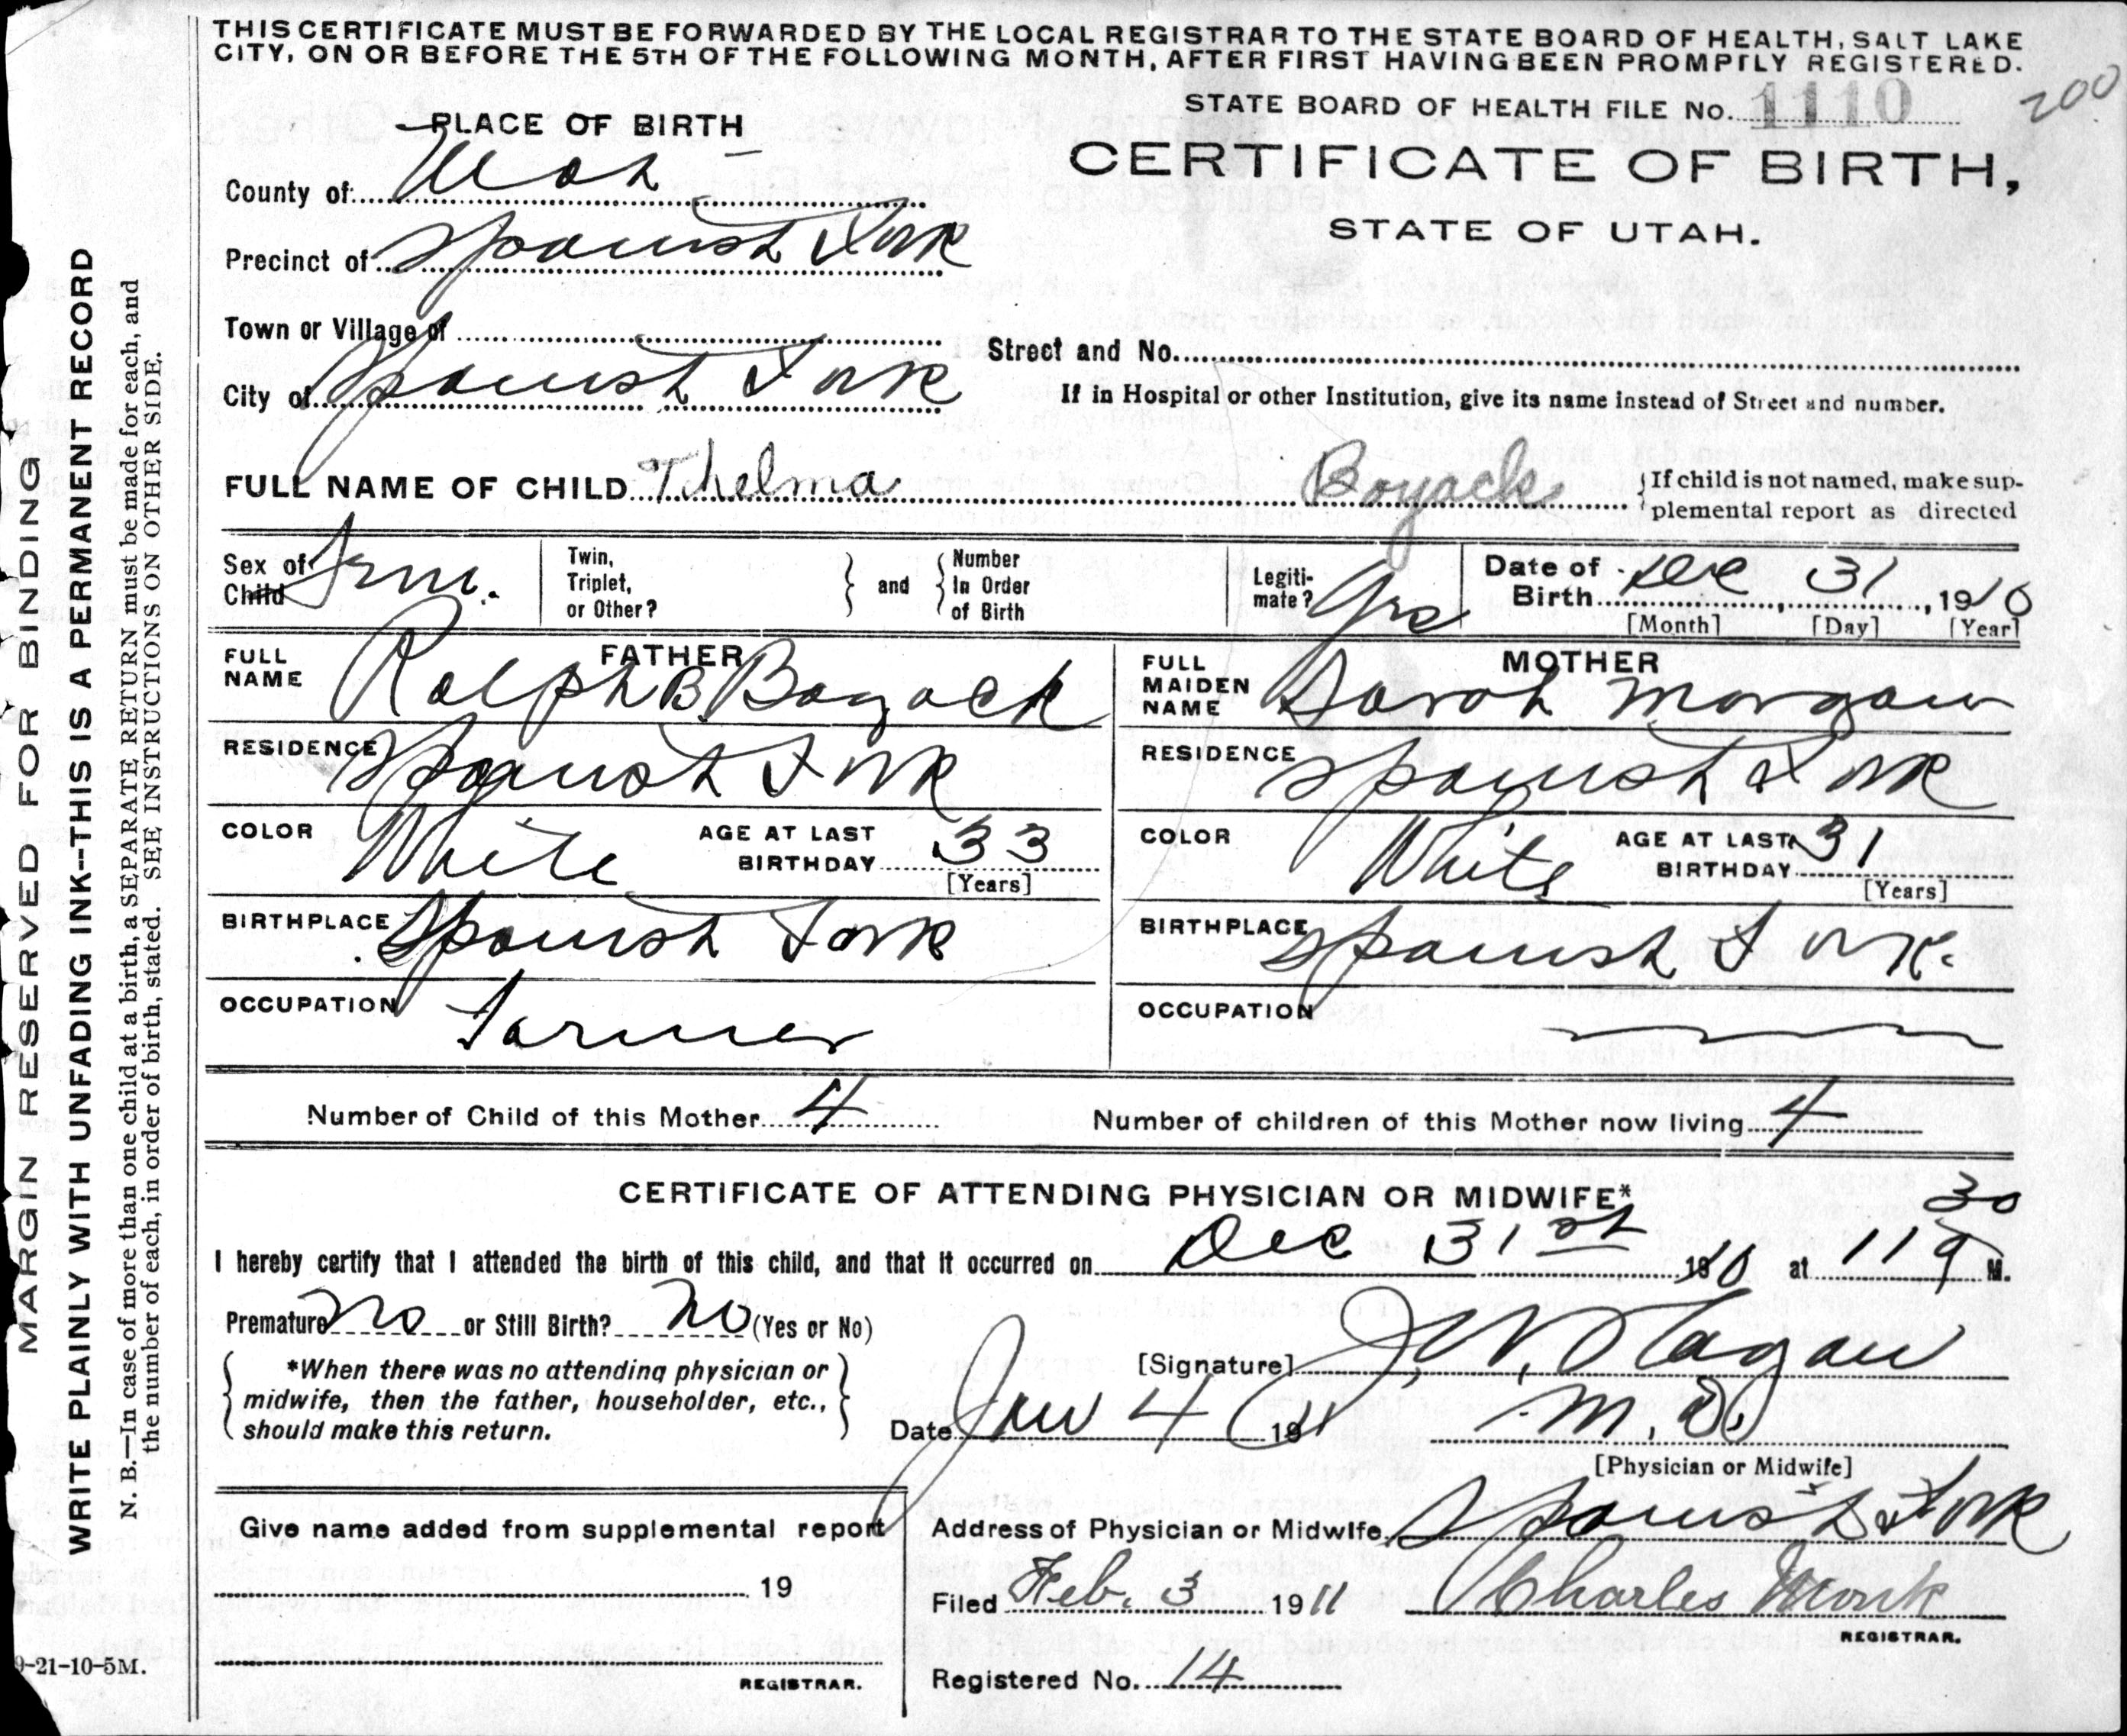 THIS CERTIFICATE MUST BE FORWARDED BY THE LOCAL REGISTRAR TO THE STATE BOARD OF HEALTH, SALT LAKE
CITY, ON OR BEFORE THE 5TH OF THE FOLLOWING MONTH, AFTER FIRST HAVING BEEN PROMPTLY REGISTERED.
STATE BOARD OF HEALTH FILE No. 1110
200
PLACE OF BIRTH
CERTIFICATE OF BIRTH,
STATE OF UTAH.
County of Utah
Precinct of Spanish Fork
Town or Village of
Street and No.
City of Spanish Fork
If in Hospital or other Institution, give its name instead of Street and number.
FULL NAME OF CHILD Thelma Boyack
If child is not named, make sup-
plemental report as directed
Sex of Child Fem.
Twin, Triplet, or Other?
and
Number In Order of Birth
Legiti-
mate? Yes
Date of Birth Dec 31, 1910
[Month] [Day] [Year]
FATHER
FULL NAME Ralph B. Boyack
RESIDENCE Spanish Fork
COLOR White
AGE AT LAST BIRTHDAY 33
[Years]
BIRTHPLACE Spanish Fork
OCCUPATION Farmer
MOTHER
FULL MAIDEN NAME Sarah Morgan
RESIDENCE Spanish Fork
COLOR White
AGE AT LAST BIRTHDAY 31
[Years]
BIRTHPLACE Spanish Fork.
OCCUPATION
Number of Child of this Mother 4
Number of children of this Mother now living 4
CERTIFICATE OF ATTENDING PHYSICIAN OR MIDWIFE*
I hereby certify that I attended the birth of this child, and that it occurred on Dec 31st 1910 at 11 30 P M.
Premature No or Still Birth? No (Yes or No)
*When there was no attending physician or
midwife, then the father, householder, etc.,
should make this return.
[Signature] J. W. Hagan
M. D.
[Physician or Midwife]
Date Jan 4 1911
Give name added from supplemental report
19
REGISTRAR.
Address of Physician or Midwife Spanish Fork
Filed Feb. 3 1911 Charles Monk
REGISTRAR.
Registered No. 14
MARGIN RESERVED FOR BINDING
WRITE PLAINLY WITH UNFADING INK--THIS IS A PERMANENT RECORD
N. B.—In case of more than one child at a birth, a SEPARATE RETURN must be made for each, and
the number of each, in order of birth, stated. SEE INSTRUCTIONS ON OTHER SIDE.
9-21-10-5M.